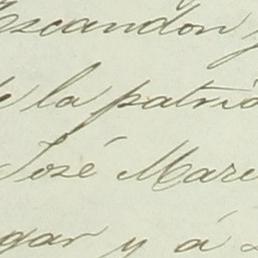 Escandon y
de la patria
José Mari
gar y á